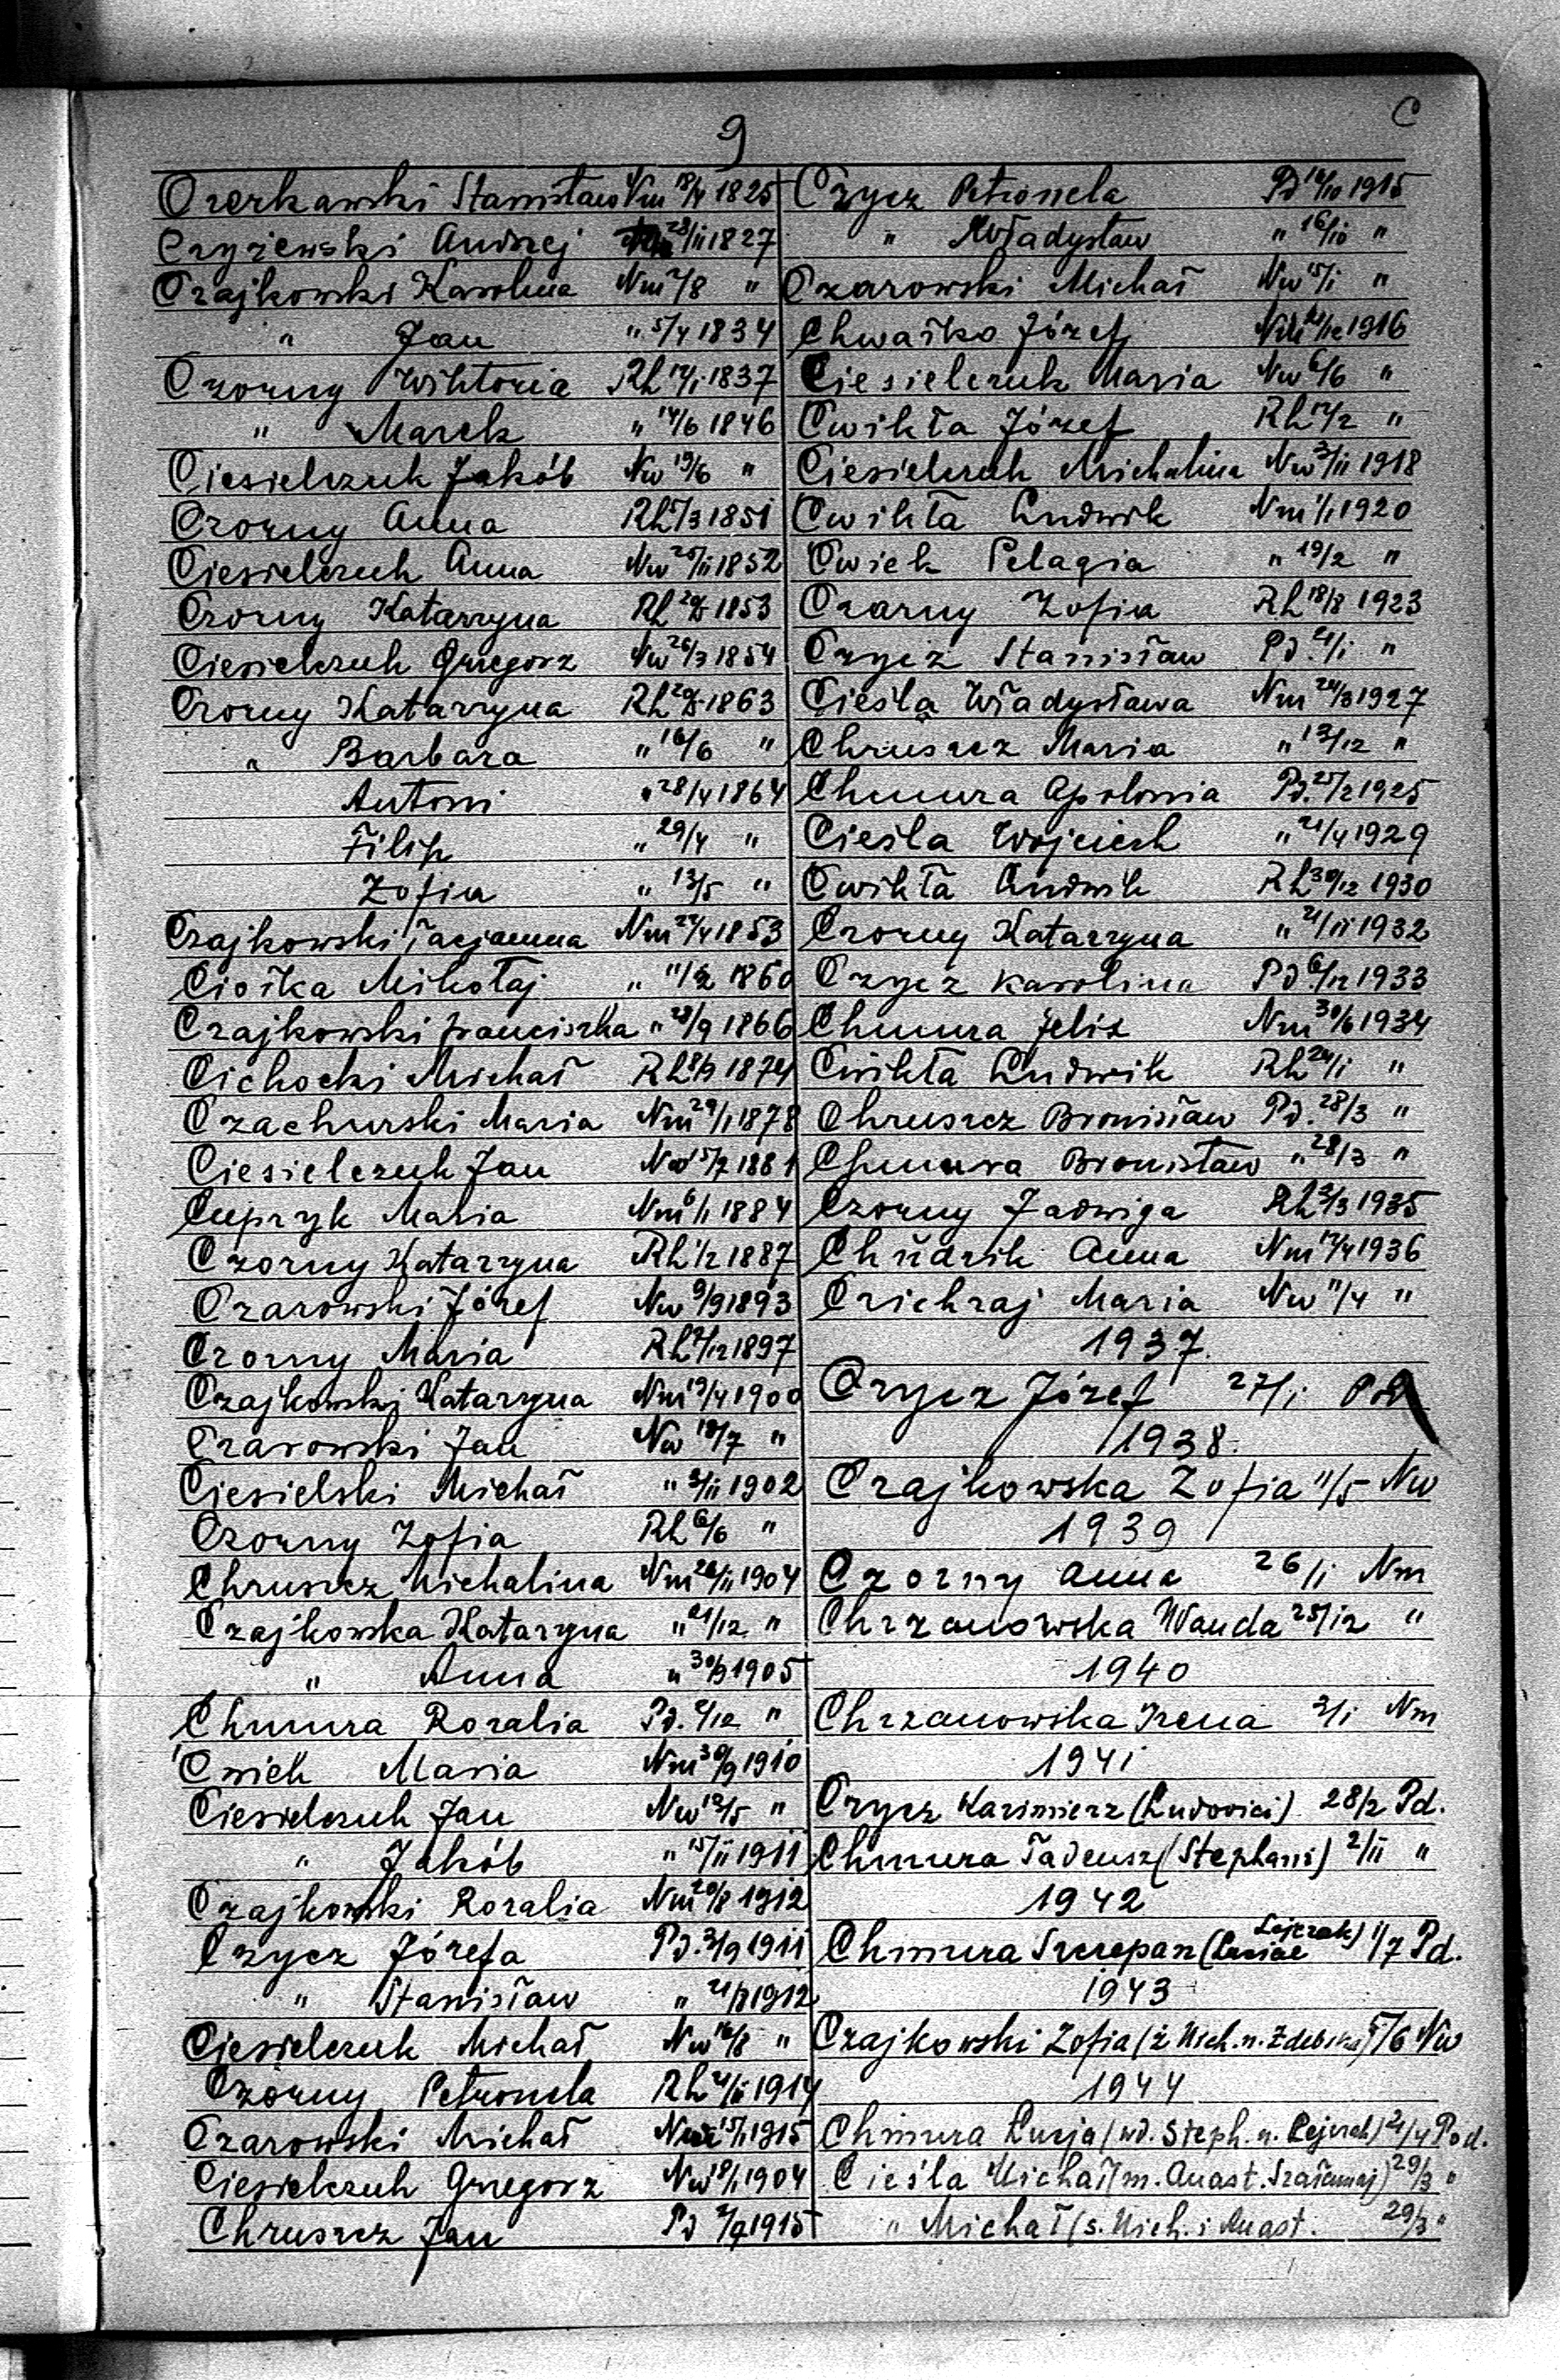 9
C
Czerkawski Stanisław Nm 18/4 1825
Czyżewski Andrzej 28/11 1827
Czajkowski Karolina Nm 2/8 "
" Jan " 5/4 1834
Czorny Wiktoria Rh 12/1 1837
" Marek " 14/6 1846
Ciesielczuk Jakób Nw 19/6 "
Czorny Anna Rh 5/3 1851
Ciesielczuk Anna Nw 25/11 1852
Czorny Katarzyna Rh 1853
Ciesielczuk Grzegorz Nw 26/3 1854
Czorny Katarzyna Rh 1863
" Barbara " 16/6 "
Antoni " 28/4 1864
Filip " 29/4 "
Zofia " 13/5 "
Czajkowski Nm 22/4 1853
Ciołka Mikołaj " 1860
Czajkowski Franciszka " 28/9 1866
Cichocki Michał Rh 1874
Czachurski Maria Nm 29/1 1878
Ciesielczuk Jan Nw 1881
Cupryk Maria Nm 6/1 1884
Czorny Katarzyna Rh 1/2 1887
Czarowski Józef Nw 9/9 1893
Czorny Maria Rh 1897
Czajkowski Katarzyna Nm 19/4 1900
Czarowski Jan Nw 18/7 "
Ciesielski Michał " 3/11 1902
Czorny Zofia Rh 6/6 "
Chruszcz Michalina Nm 26/11 1904
Czajkowska Katarzyna " 21/12 "
" Anna " 30/3 1905
Chmura Rozalia Pd. "
Cwiek Maria Nm 30/9 1910
Ciesielczuk Jan Nw 12/5 "
" Jakób " 15/11 1911
Czajkowski Rozalia Nm 20/8 1912
Czycz Józefa Pd. 3/9 1911
" Stanisław " 21/8 1912
Ciesielczuk Michał Nw 16/8 "
Czorny Petronela Rh 1914
Czarowski Michał 15/1 1915
Ciesielczuk Grzegorz Nw 18/1 1904
Chruszcz Jan Pd 1915
Czycz Petronela Pd 16/10 1915
" Władysław " 16/10 "
Czarowski Michał Nw 15/1 "
Chwałko Józef 1916
Ciesielczuk Maria Nw 6/6 "
Cwikła Józef Rh 12/2 "
Ciesielczuk Michalina Nw 3/11 1918
Cwikła Ludwik Nm 1/1 1920
Cwiek Pelagia " 19/2 "
Czarny Zofia Rh 18/8 1923
Czycz Stanisław Pd. "
Cieśla Władysława Nm 24/3 1927
Chruszcz Maria " 13/12 "
Chmura Apolonia Pd. 25/2 1925
Cieśla Wojciech " 21/4 1929
Cwikła Ludwik Rh 30/12 1930
Czorny Katarzyna " 21/11 1932
Czycz Karolina Pd. 6/12 1933
Chmura Feliz Nm 30/6 1934
Cwikła Ludwik Rh 24/1 "
Chruszcz Bronisław Pd. 28/3 "
Chmura Bronisław " 28/3 "
Czorny Jadwiga Rh 2/3 1935
Chudzik Anna Nm 12/4 1936
Czichraj Maria Nw 11/4 "
1937.
Czycz Józef 27/1 Pd
1938.
Czajkowska Zofia 11/5 Nw
1939
Czorny Anna 26/1 Nm
Chrzanowska Wanda 25/12 "
1940
Chrzanowska Irena 2/1 Nm
1941
Czycz Kazimierz (Ludovici) 28/2 Pd.
Chmura Tadeusz (Stephani) 2/11 "
1942
Chmura Szczepan (Luciae Lejczak) 1/7 Pd.
1943
Czajkowski Zofia (ż Mich. n. Zdebska) 5/6 Nw
1944
Chmura Łucja (wd. Steph. n. Lejczak) 21/4 Pod.
Cieśla Michał (m. Anast. ) 29/3 "
" Michał (s. Mich. i Anast. 29/3 "